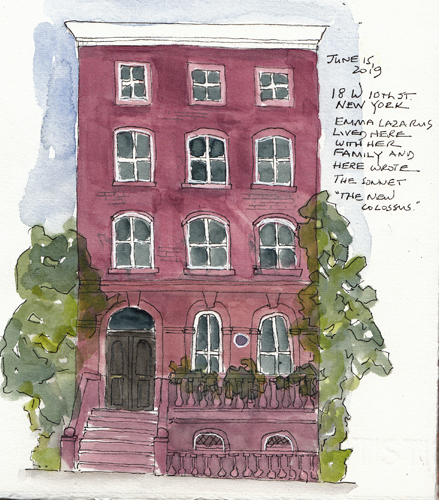 JUNE 15,
2019
18 W 10TH ST.
NEW YORK
EMMA LAZARUS
LIVED HERE
WITH HER
FAMILY AND
HERE WROTE
THE SONNET
"THE NEW
COLOSSUS."